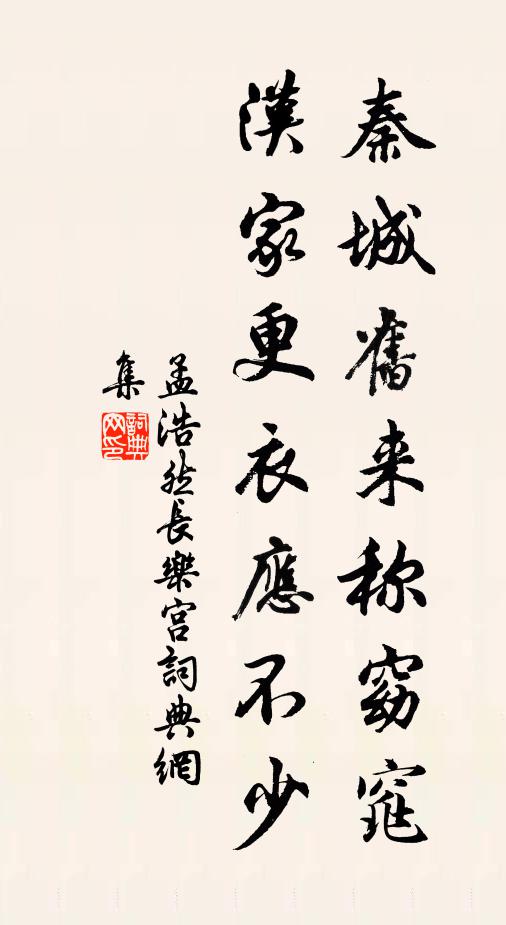 秦城舊来称窈窕
漢家更衣應不少
孟浩然長樂宮詞典網
集
詞典网印